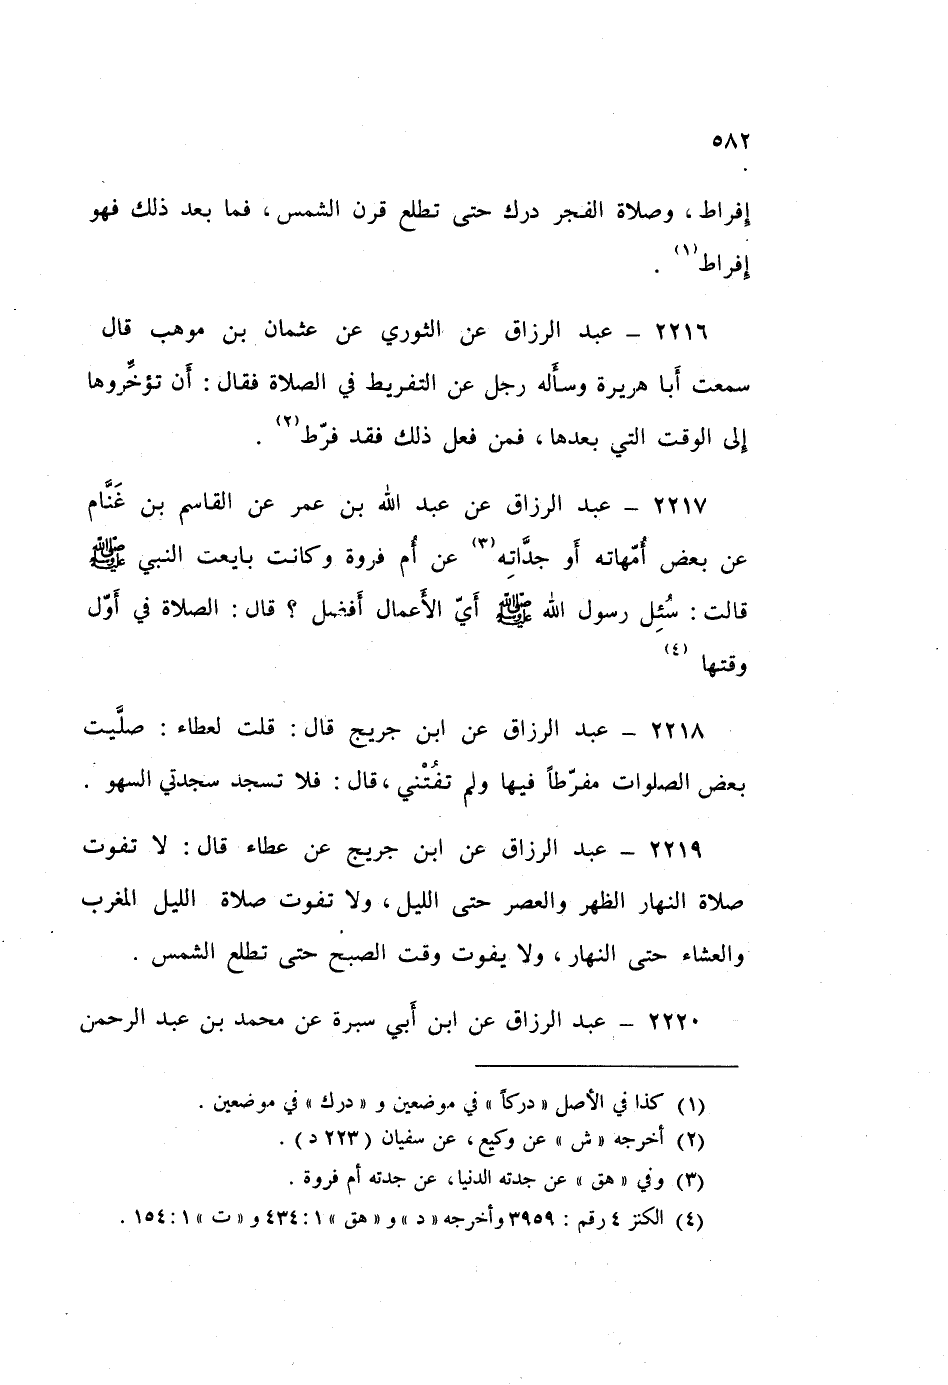 ٥٨٢
إفراط ، وصلاة الفجر درك حتى تطلع قرن الشمس ، فما بعد ذلك فهو
إفراط(١) .
٢٢١٦ – عبد الرزاق عن الثوري عن عثمان بن موهب قال
سمعت أبا هريرة وسأله رجل عن التفريط في الصلاة فقال : أن تؤخّروها
إلى الوقت التي بعدها ، فمن فعل ذلك فقد فرّط(٢) .
٢٢١٧ – عبد الرزاق عن عبد الله بن عمر عن القاسم بن غَنَّام
عن بعض أُمّهاته أو جدَّاتِه(٣) عن أُم فروة وكانت بايعت النبي ﷺ
قالت : سُئِل رسول الله ﷺ أيّ الأَعمال أفضل ؟ قال : الصلاة في أوّل
وقتها (٤)
٢٢١٨ – عبد الرزاق عن ابن جريج قال : قلت لعطاء : صلَّيت
بعض الصلوات مفرّطاً فيها ولم تفُتْني ، قال : فلا تسجد سجدتي السهو .
٢٢١٩ – عبد الرزاق عن ابن جريج عن عطاء قال : لا تفوت
صلاة النهار الظهر والعصر حتى الليل ، ولا تفوت صلاة الليل المغرب
والعشاء حتى النهار ، ولا يفوت وقت الصبح حتى تطلع الشمس .
٢٢٢٠ – عبد الرزاق عن ابن أَبي سبرة عن محمد بن عبد الرحمن
(١) كذا في الأصل « دركاً » في موضعين و « درك » في موضعين .
(٢) أخرجه « ش » عن وكيع ، عن سفيان ( ٢٢٣ د ) .
(٣) وفي « هق » عن جدته الدنيا ، عن جدته أم فروة .
(٤) الكنز ٤ رقم : ٣٩٥٩ وأخرجه « د » و « هق » ١ : ٤٣٤ و « ت » ١ : ١٥٤ .